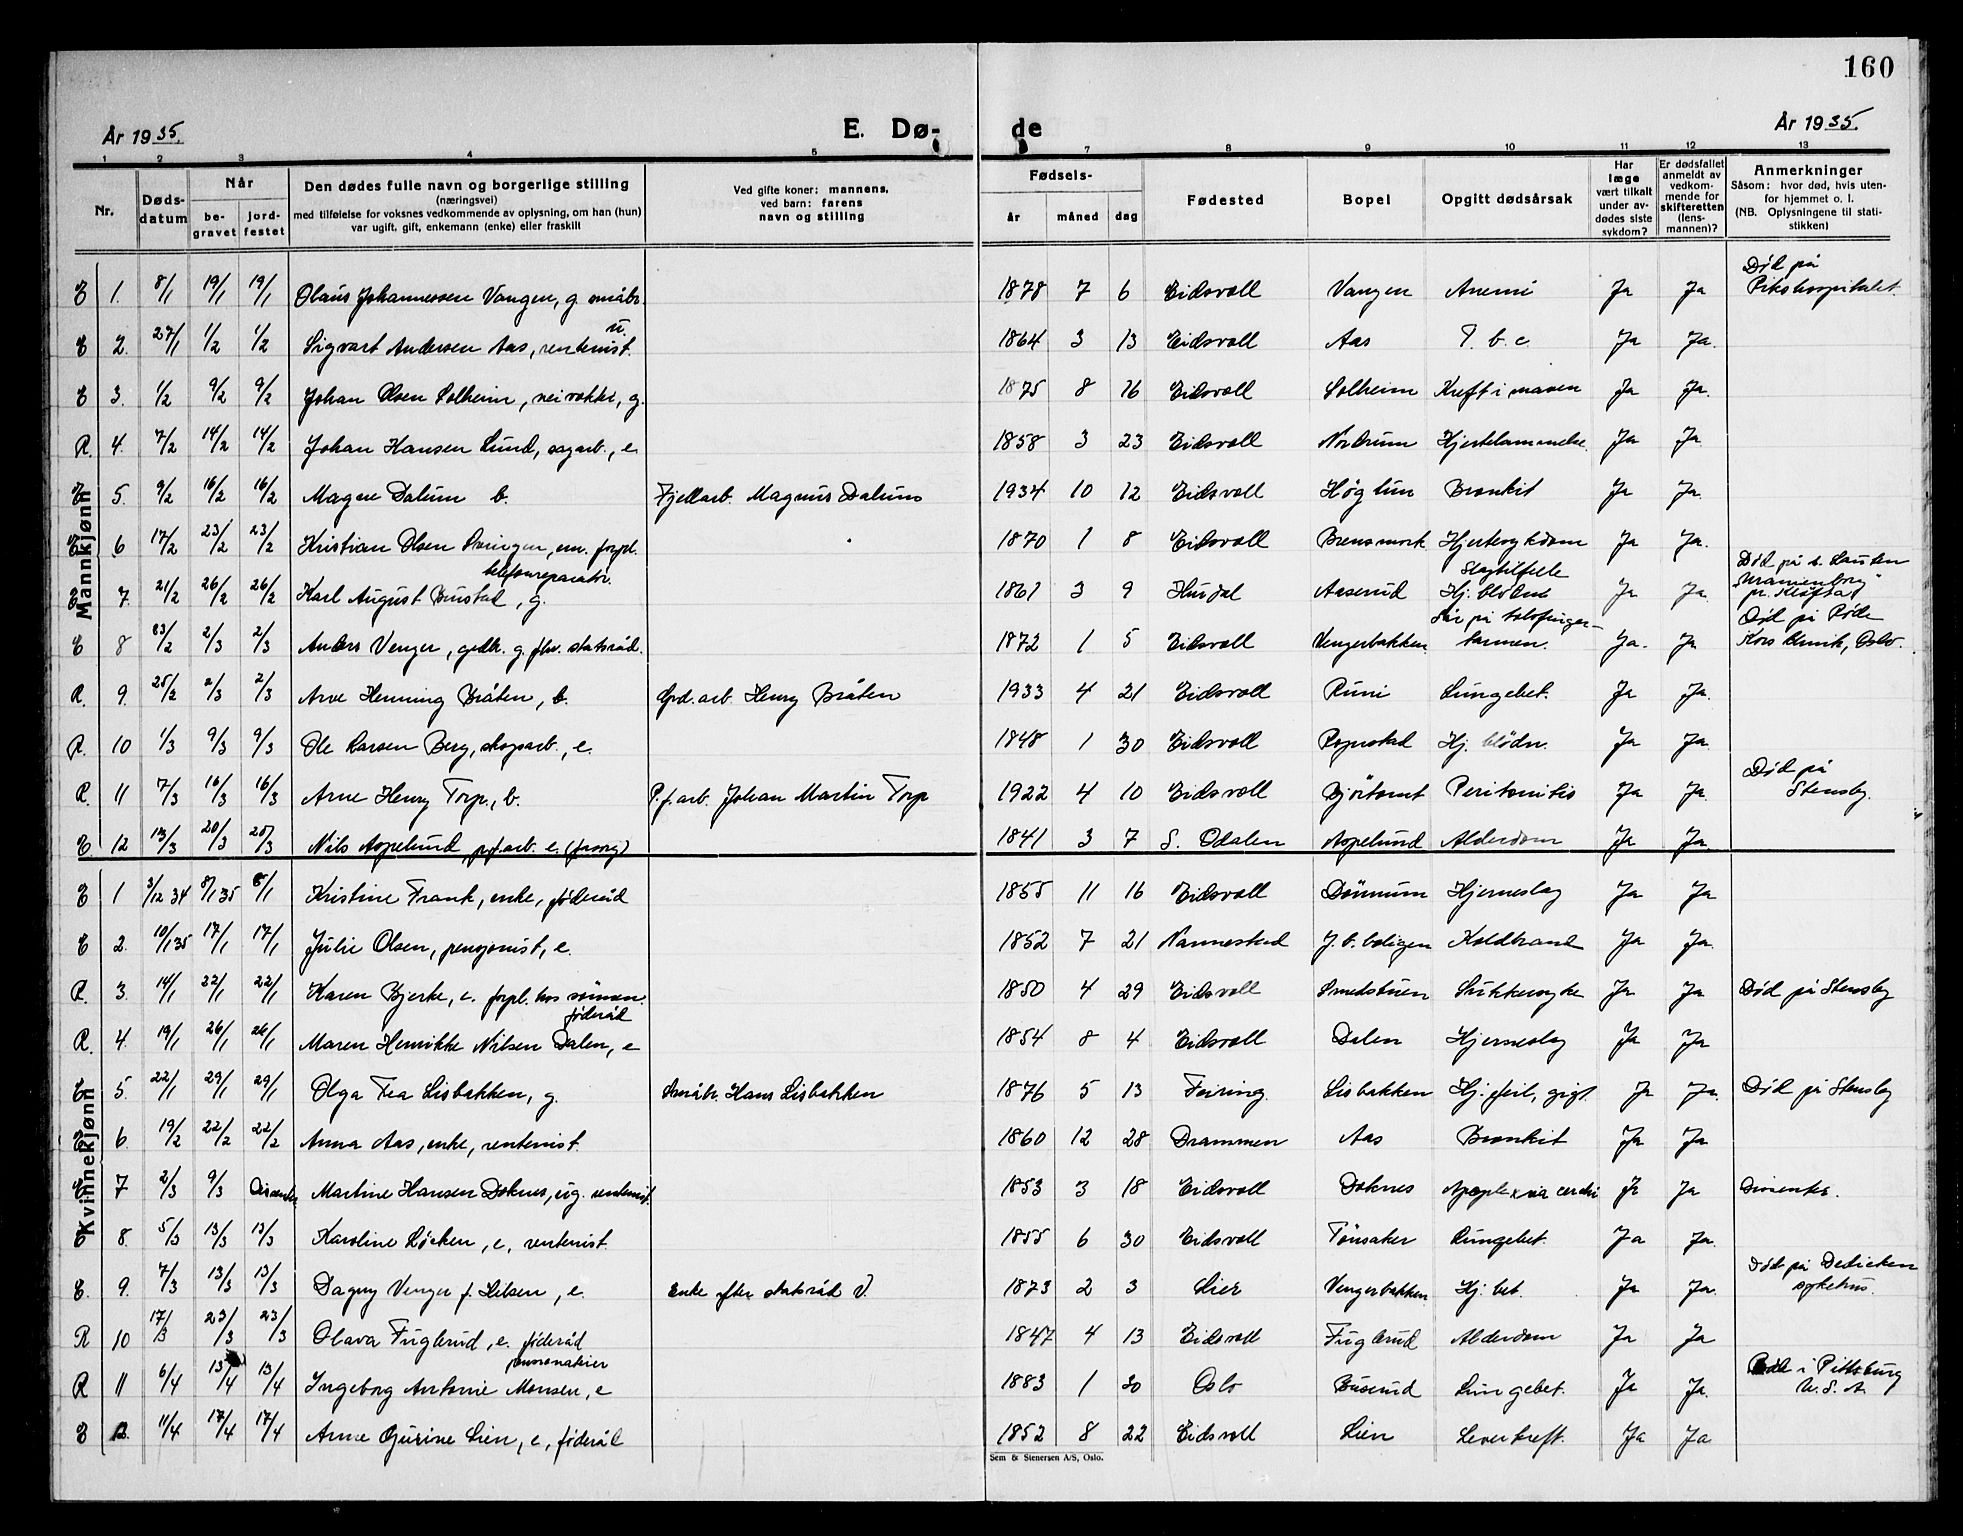 160
År 1935.
E. Dø- de
År 1935.
1 2 3 4 5 7 8 9 10 11 12 13
Nr.
Døds-
datum
Når
be-
gravet
jord-
festet
Den dødes fulle navn og borgerlige stilling
(næringsvei)
med tilføielse for voksnes vedkommende av oplysning, om han (hun)
var ugift, gift, enkemann (enke) eller fraskilt
Ved gifte koner: mannens,
ved barn: farens
navn og stilling
Fødsels-
år måned dag
Fødested
Bopel
Opgitt dødsårsak
Har
læge
vært tilkalt
under av-
dødes siste
sykdom?
Er dødsfallet
anmeldt av
vedkom-
mende for
skifteretten
(lens-
mannen)?
Anmerkninger
Såsom: hvor død, hvis uten-
for hjemmet o. l.
(NB. Oplysningene til stati-
stikken)
Mannkjønn
E 1. 8/1 19/1 19/1 Olaus Johannessen Vangen, g. småbr. 1878 7 6 Eidsvoll Vangen Anemi Ja Ja Død på Rikshospitalet.
E 2. 27/1 1/2 1/2 Sigvart Andersen Aas, rentenist. u. 1864 3 13 Eidsvoll Aas T. b. c. Ja Ja.
E 3. 1/2 9/2 9/2 Johan Olsen Solheim, veivokter, g. 1875 8 16 Eidsvoll Solheim Kreft i maven Ja Ja.
R. 4. 7/2 14/2 14/2 Johan Hansen Lund, sagarb., e. 1858 3 23 Eidsvoll Nordrum Hjertelammelse. Ja Ja.
E 5. 9/2 16/2 16/2 Magne Dalum b. Fjellarb. Magnus Dalum 1934 10 12 Eidsvoll Høgtun Bronkit Ja Ja.
E 6 17/2 23/2 23/2 Kristian Olsen em. forpl. 1870 1 8 Eidsvoll Brensmork Hjertesykdom Ja Ja.
E 7. 21/2 26/2 26/2 Karl August Bustad, g. telefonreparatør. 1861 3 9 Hurdal Aaserud Slagtilfelle Hj. blødn. Ja Ja. Død på "Uranienborg" pr. Kløfta
E 8 23/2 2/3 2/3 Anders Venger, gdbr. g. fhv. statsråd. 1872 1 5 Eidsvoll Vengerbakken. Sår på tolvfinger- tarmen. Ja. Ja Død på Røde Kors klinik, Oslo.
R. 9. 25/2 2/3 2/3 Arve Henning Bråten, b. Grd.arb. Henry Bråten 1933 4 21 Eidsvoll Runi Lungebet. Ja Ja.
R. 10 1/3 9/3 9/3 Ole Larsen Berg, skogsarb., e. 1848 1 30 Eidsvoll Rognstad Hj. blødn. Ja Ja.
R. 11 7/3 16/3 16/3 Arne Henry Torp, b. P.f.arb. Johan Martin Torp 1922 4 10 Eidsvoll Bjørtomt Peritonitis Ja Ja. Død på Stensby.
E. 12 13/3 20/3 20/3 Nils Aspelund, pf.arb. e. (forsg) 1841 3 7 S. Odalen Aspelund Alderdom Ja Ja.
Kvinnekjønn
E 1 3/12 34 8/1 35 8/1 Kristine Frank, enke, føderåd 1855 11 16 Eidsvoll Dønnum Hjerneslag Ja Ja
E 2. 10/1 35 17/1 17/1 Julie Olsen, pensjonist, e. 1852 7 21 Nannestad J.b. boligen Koldbrand Ja Ja.
R. 3. 14/1 22/1 22/1 Karen Bjerke, e. forpl. hos sønnen. 1850 4 29 Eidsvoll Smedstuen Sukkersyke Ja Ja Død på Stensby
R. 4. 19/1 26/1 26/1 Maren Henrikke Nilsen Dalen, e føderåd 1854 8 4 Eidsvoll Dalen Hjerneslag Ja Ja
E 5. 22/1 29/1 29/1 Olga Tea Lisbakken, g. Småbr. Hans Lisbakken 1876 5 13 Feiring. Lisbakken Hj. feil, gigt. Ja Ja. Død på Stensby
E 6. 19/2 22/2 22/2 Anna Aas, enke, rentenist. 1860 12 28 Drammen Aas Bronkit Ja Ja
E 7 2/3 9/3 Martine Hansen Doknes, ug. rentenist. 1853 3 18 Eidsvoll Doknes Apoplexia cerebri Ja Ja Dissenter.
E 8. 5/3 13/3 13/3 Karoline Løcken, e, rentenist. 1855 6 30 Eidsvoll Tønsaker Lungebet. Ja Ja.
E. 9. 7/3 13/3 13/3 Dagny Venger f. Kilsen, e. Enke efter statsråd V. 1873 2 3 Lier Vengerbakken Hj. bet. Ja Ja. Død på Dedicken sykehus.
R 10 17/3 23/3 23/3 Olava Fuglerud, e. føderåd 1847 4 13 Eidsvoll Fuglerud Alderdom Ja Ja
R 11 6/4 13/4 13/4 Ingeborg Antonie Monsen, e 1883 1 30 Oslo Busrud Lungebet. Ja Ja. Død i Pittsburg U. S. A.
E 12. 11/4 17/4 17/4 Anne Gurine Lien, e, føderåd 1852 8 22 Eidsvoll Lien Leverkreft. Ja Ja
Sem & Stenersen A/S, Oslo.